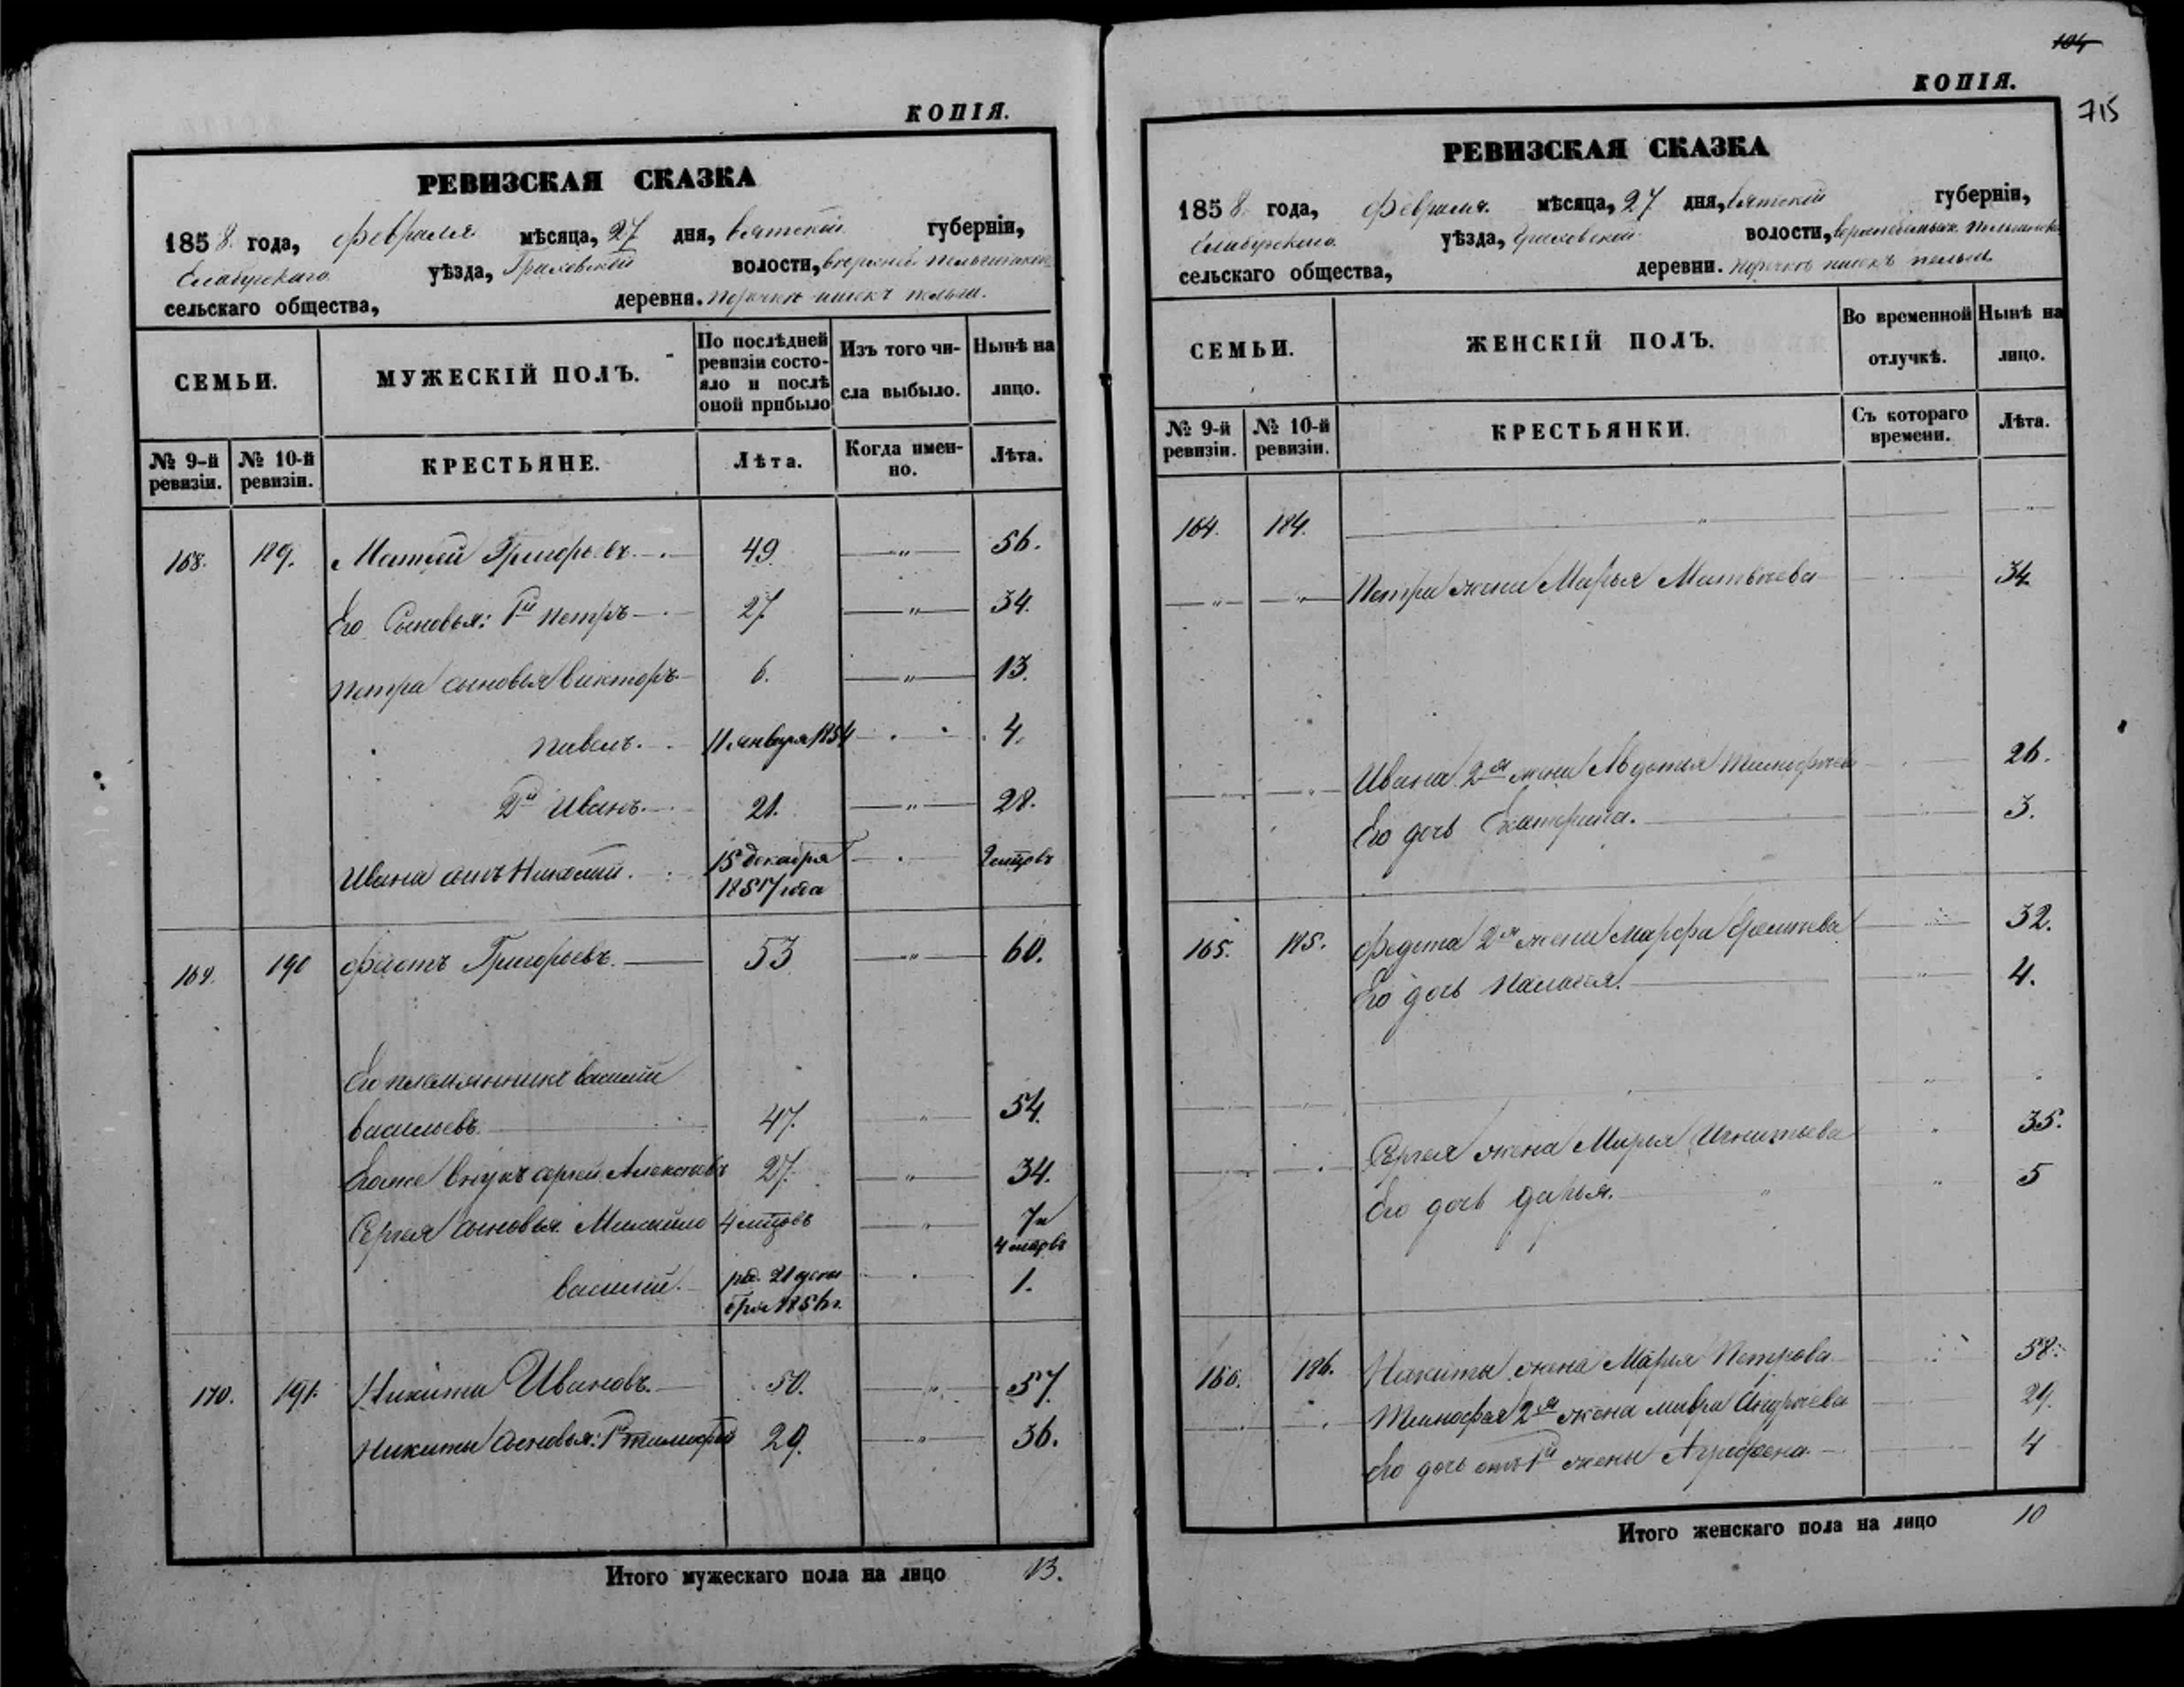 КОПІЯ.
РЕВИЗСКАЯ СКАЗКА
1858 года, февраля мѣсяца, 27 дня, Вятской губерніи,
Елабужскаго уѣзда, Граховской волости,
сельскаго общества, деревни.
СЕМЬИ.
МУЖЕСКІЙ ПОЛЪ.
По послѣдней ревизіи состо-
яло и послѣ оной прибыло
Изъ того чи-
сла выбыло.
Нынѣ на
лицо.
№ 9-й ревизіи.
№ 10-й ревизіи.
КРЕСТЬЯНЕ.
Лѣта.
Когда имен-
но.
Лѣта.
168. 189. Матвей Григорьевъ 49 — " — 56.
Его Сыновья: 1й Петръ 27 — " — 34.
Петра сыновья Викторъ 6. — " — 13.
Павелъ 11 января 1854 4.
2й Иванъ 21. — " — 28.
Ивана сынъ Николай. 15 декабря 2 мѣсцовъ
1857 года
169. 190 Феоктъ Григорьевъ. 53 — " — 60.
Его племянникъ Василий
Васильевъ 47. — " — 54.
Его же внукъ Сергей Алексеевъ 27. — " — 34.
Сергея сыновья. Михайло 4 мѣсцовъ — " — 7 и
4 мѣсцовъ
Василий. 1.
170. 191. Никита Ивановъ. 50. — " — 57.
Никиты Сыновья: 1й Тимофей 29. — " — 36.
Итого мужескаго пола на лицо 13.
104
КОПІЯ.
715
РЕВИЗСКАЯ СКАЗКА
1858 года, февраля мѣсяца, 27 дня, Вятской губерніи,
Елабужскаго уѣзда, Граховской волости,
сельскаго общества, деревни.
СЕМЬИ.
ЖЕНСКІЙ ПОЛЪ.
Во временной
отлучкѣ.
Нынѣ на
лицо.
№ 9-й ревизіи.
№ 10-й ревизіи.
КРЕСТЬЯНКИ.
Съ котораго
времени.
Лѣта.
164. 184. "
— " — — " — Петра жена Марья Матвѣева 34.
Ивана 2я жена Авдотья Тимофѣева 26.
Его дочь Екатерина. 3.
165. 185. Федота 2я жена Марфа 32.
Его дочь Палагея. 4.
Сергея жена Марья Игнатьева 35.
Его дочь Дарья. 5
166. 186. Никиты жена Марья Петрова 58.
Тимофея 2я жена Мавра Андрѣева 29.
Его дочь отъ 1й жены Аграфена 4
Итого женскаго пола на лицо 10